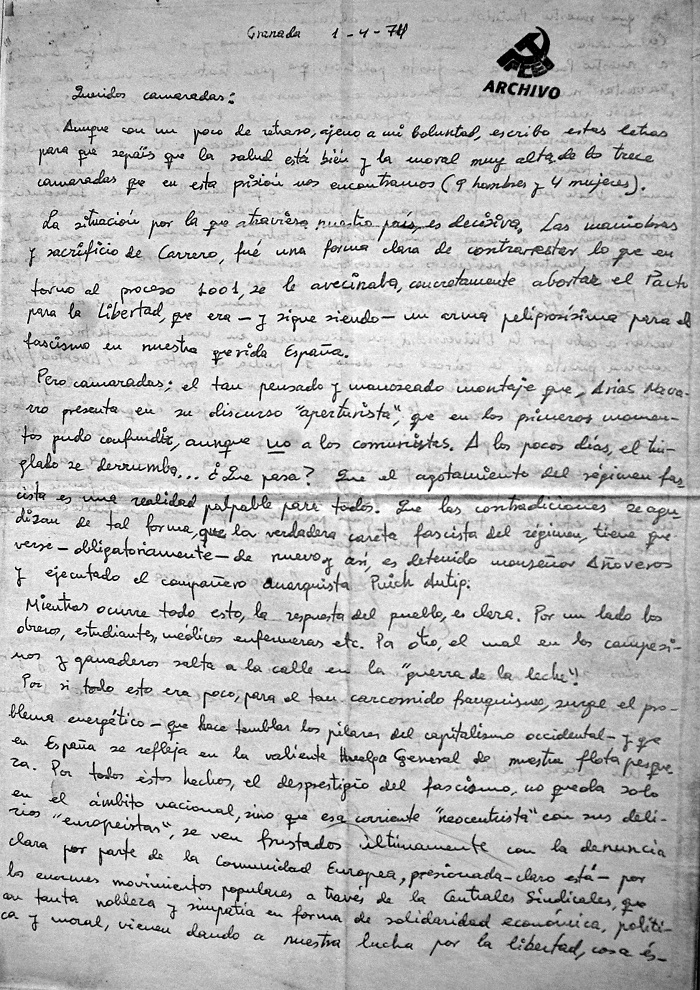 Granada 1-4-74
PCE
ARCHIVO
Queridos camaradas:
Aunque con un poco de retraso, ajeno a mi boluntad, escribo estas letras
para que sepáis que la salud está bién y la moral muy alta, de los trece
camaradas que en esta prisión nos encontramos (9 hombres y 4 mujeres).
La situación por la que atraviesa nuestro país, es decisiva. Las maniobras
y sacrificio de Carrero, fué una forma clara de contrarrestar lo que en
torno al proceso 1001, se le avecinaba, concretamente abortar el Pacto
para la Libertad, que era - y sigue siendo - un arma peligrosísima para el
fascismo en nuestra querida España.
Pero camaradas; el tan pensado y manoseado montaje que, Arias Nava-
rro presenta en su discurso "aperturista", que en los primeros momen-
tos pudo confundir, aunque no a los comunistas. A los pocos días, el tin-
glado se derrumba... ¿Que pasa? Que el agotamiento del régimen fas-
cista es una realidad palpable para todos. Que las contradiciones se agu-
dizan de tal forma, que la verdadera careta fascista del régimen, tiene que
verse - obligatoriamente - de nuevo y así, es detenido monseñor Añoveros
y ejecutado el compañero anarquista Puich Antig.
Mientras ocurre todo esto, la respuesta del pueblo, es clara. Por un lado los
obreros, estudiantes, médicos enfermeras etc. Por otro, el mal en los campesi-
nos y ganaderos salta a la calle en la "guerra de la leche"!
Por si todo esto era poco, para el tan carcomido franquismo, surge el pro-
blema energético - que hace temblar los pilares del capitalismo occidental - y que
en España se refleja en la valiente Huelga General de nuestra flota pesque
ra. Por todos éstos hechos, el desprestigio del fascismo, no queda solo
en el ámbito nacional, sino que esa corriente "neocentrista" con sus deli-
rios "europeistas", se ven frustados últimamente con la denuncia
clara por parte de la Comunidad Europea, presionada - claro está - por
los enormes movimientos populares a través de la Centrales Sindicales, que
con tanta nobleza y simpatía en forma de solidaridad económica, políti-
ca y moral, vienen dando a nuestra lucha por la libertad, cosa és-